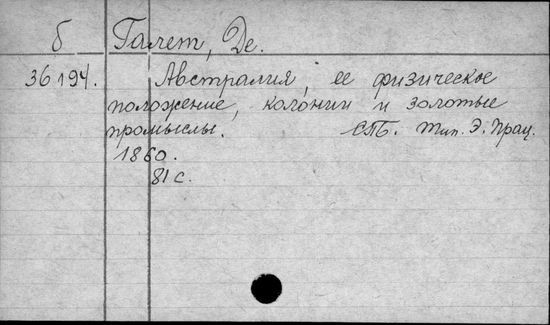 б Галет, Де.
36194. Австралия, ее физическое
положение, колонии и золотые
промыслы. СПБ. Тип. Э. Прац.
1860.
81 с.